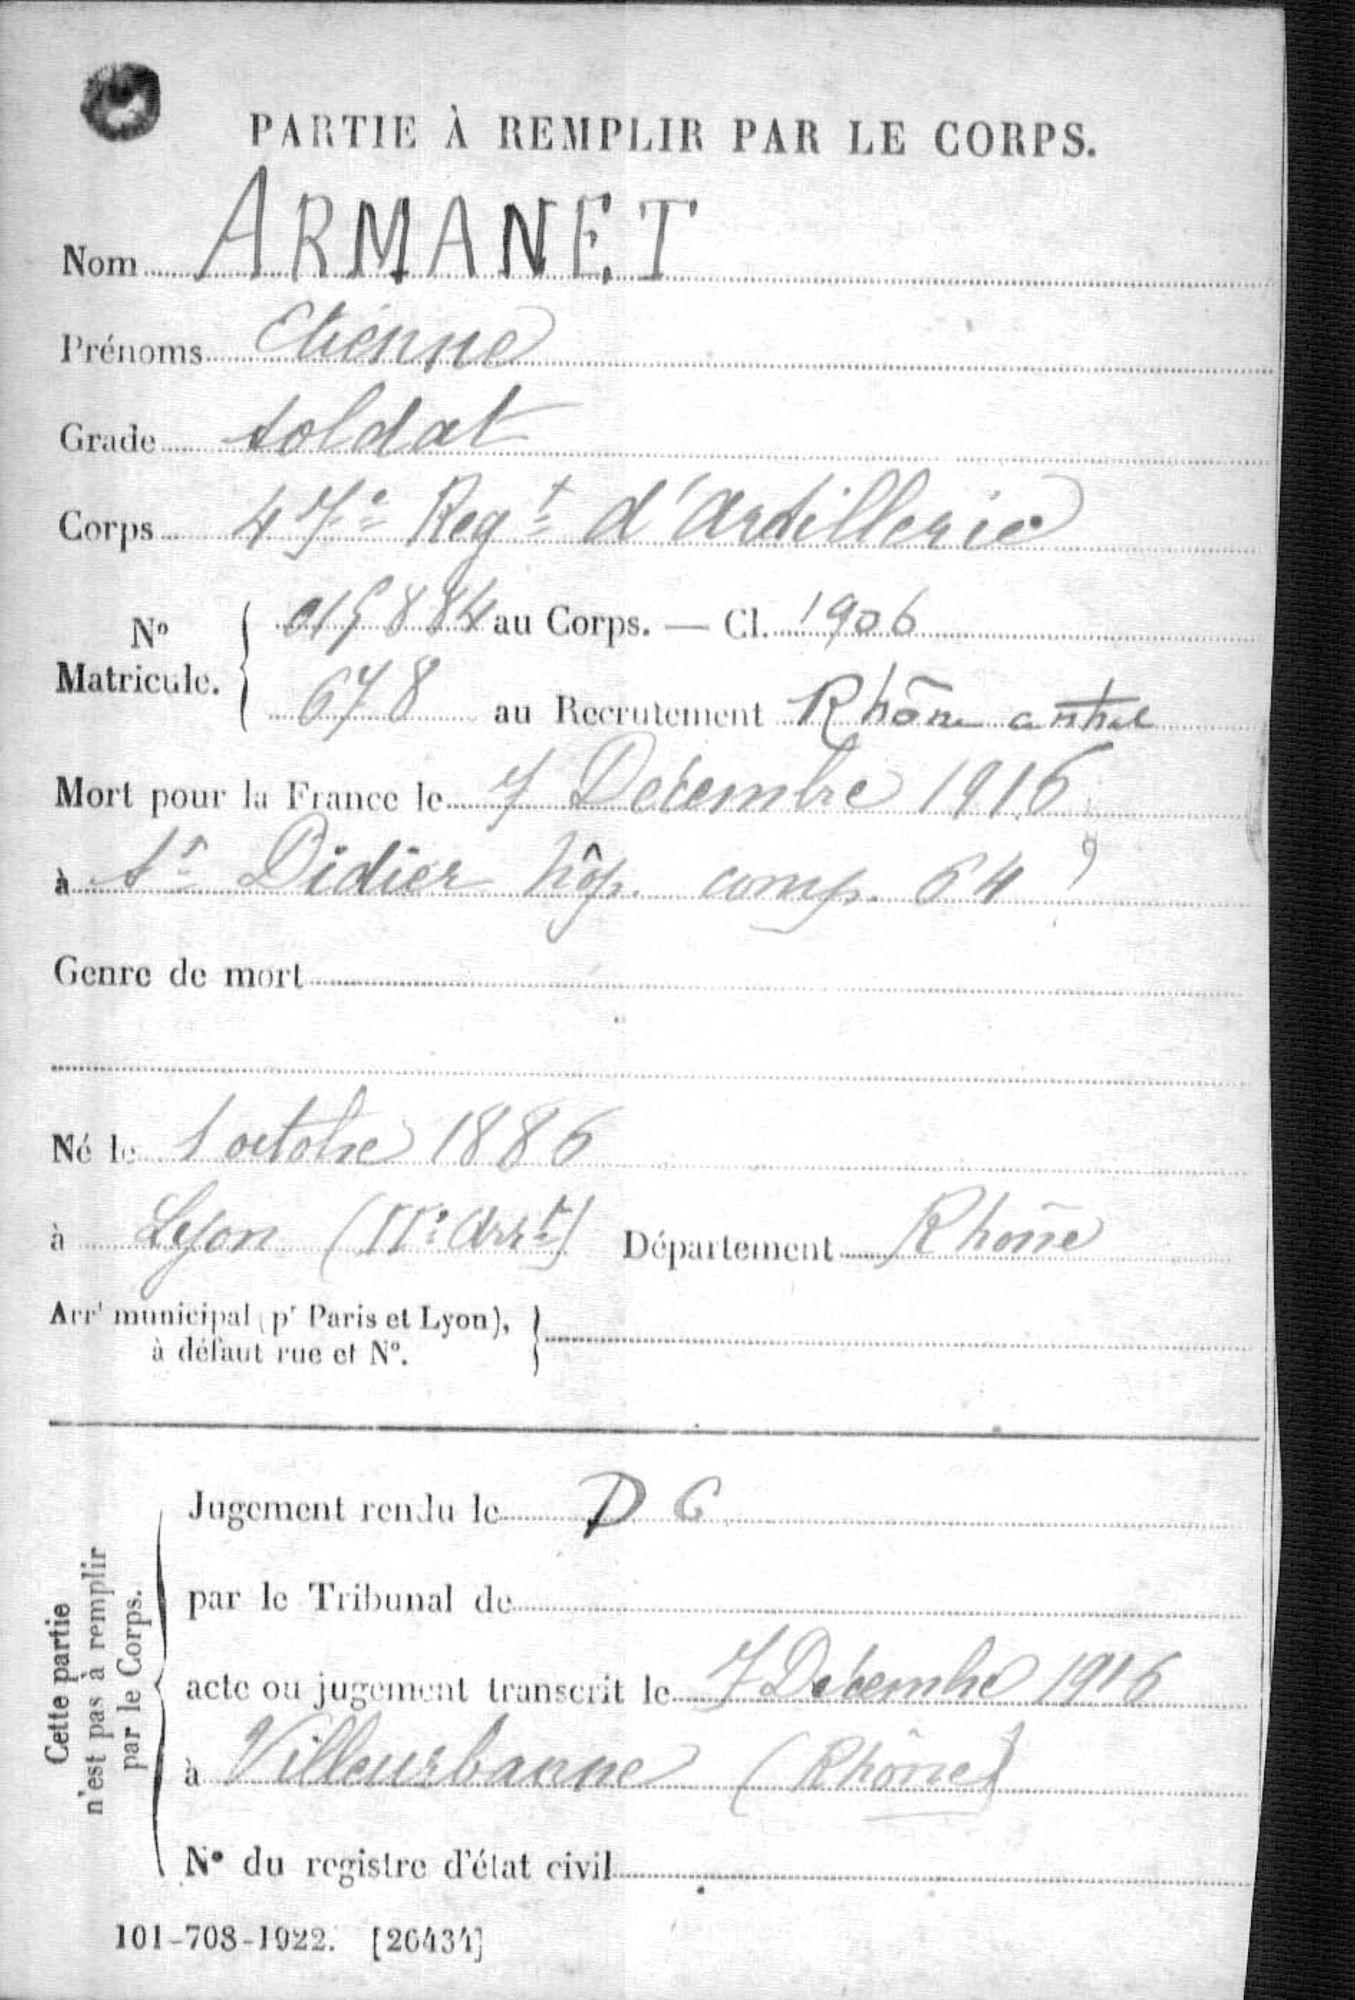 PARTIE À REMPLIR PAR LE CORPS.
Nom ARMANET
Prénoms Etienne
Grade soldat
Corps 47e Regt d'Artillerie
No Matricule. 015884 au Corps. — Cl. 1906
678 au Recrutement Rhône central
Mort pour la France le 7 Décembre 1916
à St Didier hôp. comp. 64
Genre de mort
Né le 1 octobre 1886
à Lyon (IIe Arrt) Département Rhône
Arrt municipal (pr Paris et Lyon),
à défaut rue et No.
Cette partie
n'est pas à remplir
par le Corps.
Jugement rendu le D C
par le Tribunal de
acte ou jugement transcrit le 7 Décembre 1916
à Villeurbanne (Rhône)
No du registre d'état civil
101-708-1922. [26434]